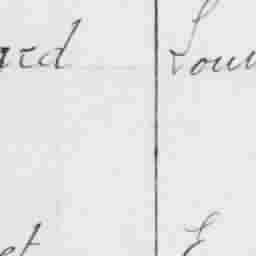 ard Lou
et E